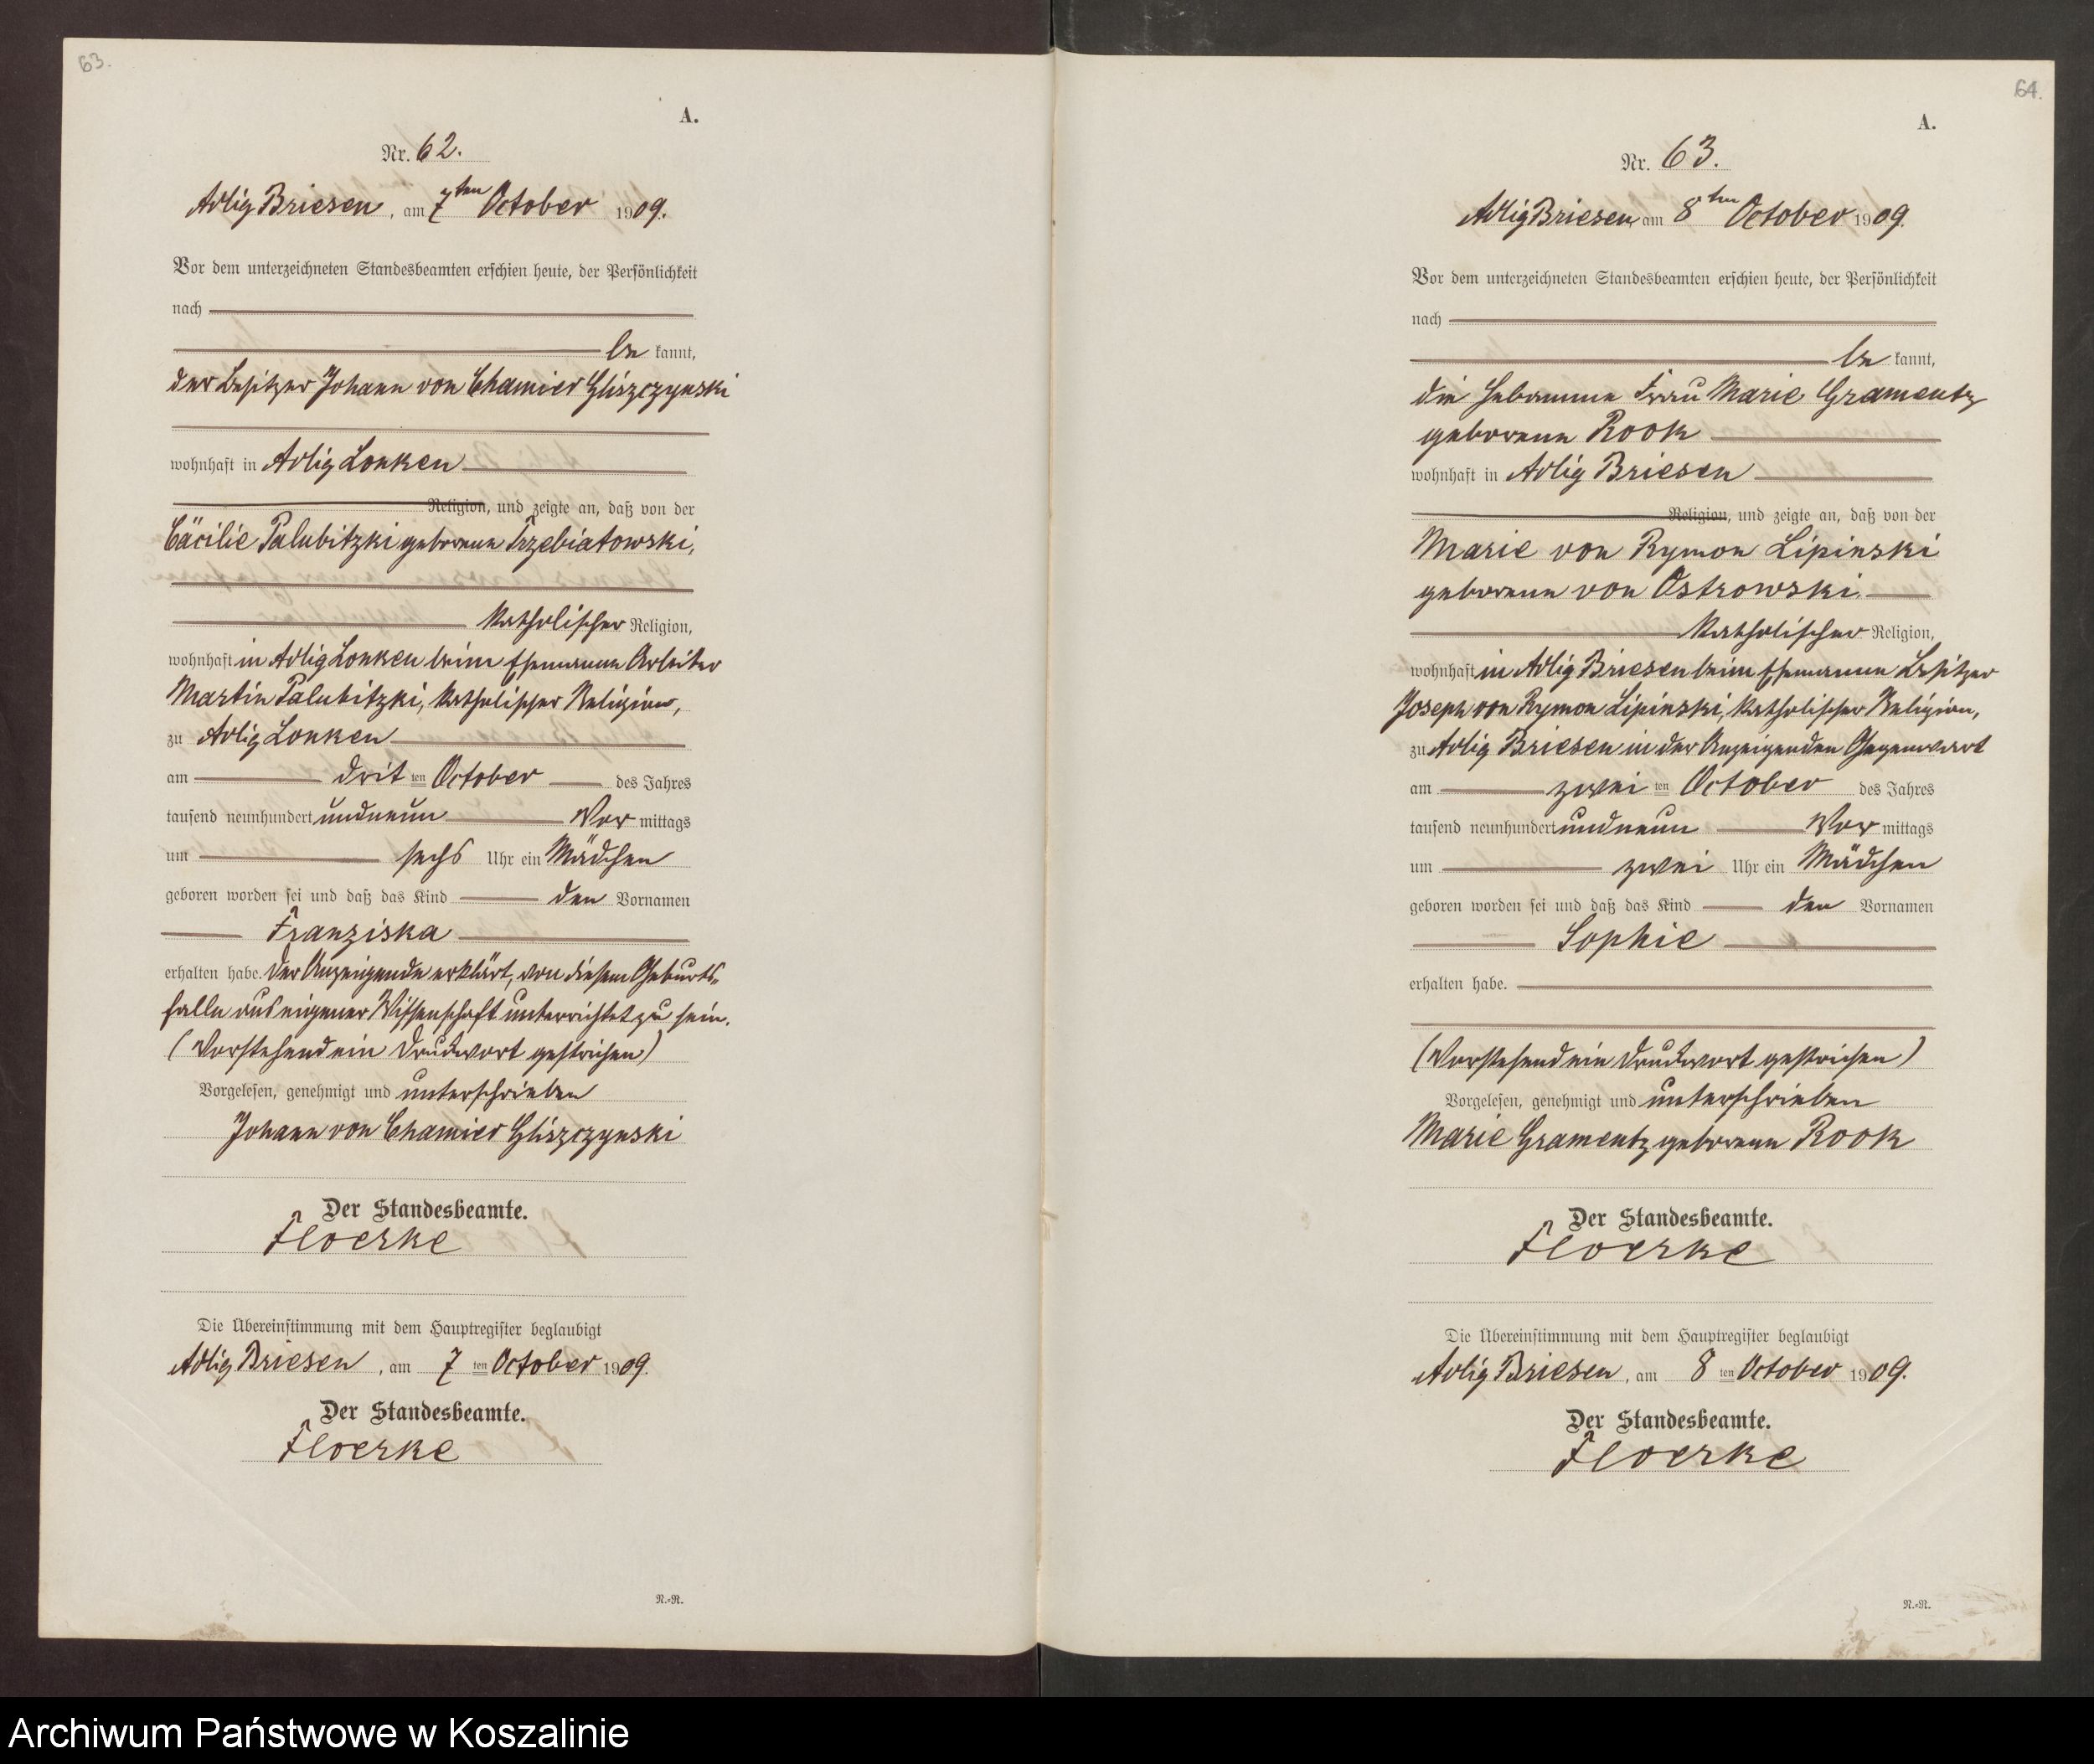 63.
A.
Nr. 62.
Adlig Briesen, am 7ten October 1909.
Vor dem unterzeichneten Standesbeamten erschien heute, der Persönlichkeit
nach
be kannt,
der Besitzer Johann von Chamier Gliszczynski
wohnhaft in Adlig Lonken
Religion, und zeigte an, daß von der
Cäcilie Palubitzki geborene Trzebiatowski,
katholischer Religion,
wohnhaft in Adlig Lonken beim Ehemanne Arbeiter
Martin Palubitzki, katholischer Religion,
zu Adlig Lonken
am dritten October des Jahres
tausend neunhundert undneun Vor mittags
um sechs Uhr ein Mädchen
geboren worden sei und daß das Kind den Vornamen
Franziska
erhalten habe. Der Anzeigende erklärt, von diesem Geburts-
falle aus eigener Wissenschaft unterrichtet zu sein.
(Vorstehend ein Druckwort gestrichen)
Vorgelesen, genehmigt und unterschrieben
Johann von Chamier Gliszczynski
Der Standesbeamte.
Floerke
Die Übereinstimmung mit dem Hauptregister beglaubigt
Adlig Briesen, am 7 ten October 1909.
Der Standesbeamte.
Floerke
R.=R.
64.
A.
Nr. 63.
Adlig Briesen, am 8ten October 1909.
Vor dem unterzeichneten Standesbeamten erschien heute, der Persönlichkeit
nach
be kannt,
die Hebamme Frau Marie Gramentz
geborene Rook
wohnhaft in Adlig Briesen
Religion, und zeigte an, daß von der
Marie von Rymon Lipinski
geborene von Ostrowski
katholischer Religion,
wohnhaft in Adlig Briesen beim Ehemanne Besitzer
Joseph von Rymon Lipinski, katholischer Religion,
zu Adlig Briesen in der Anzeigenden Gegenwart
am zwei ten October des Jahres
tausend neunhundert undneun Vor mittags
um zwei Uhr ein Mädchen
geboren worden sei und daß das Kind den Vornamen
Sophie
erhalten habe.
(Vorstehend ein Druckwort gestrichen)
Vorgelesen, genehmigt und unterschrieben
Marie Gramentz geborene Rook
Der Standesbeamte.
Floerke
Die Übereinstimmung mit dem Hauptregister beglaubigt
Adlig Briesen, am 8 ten October 1909.
Der Standesbeamte.
Floerke
R.=R.
Archiwum Państwowe w Koszalinie